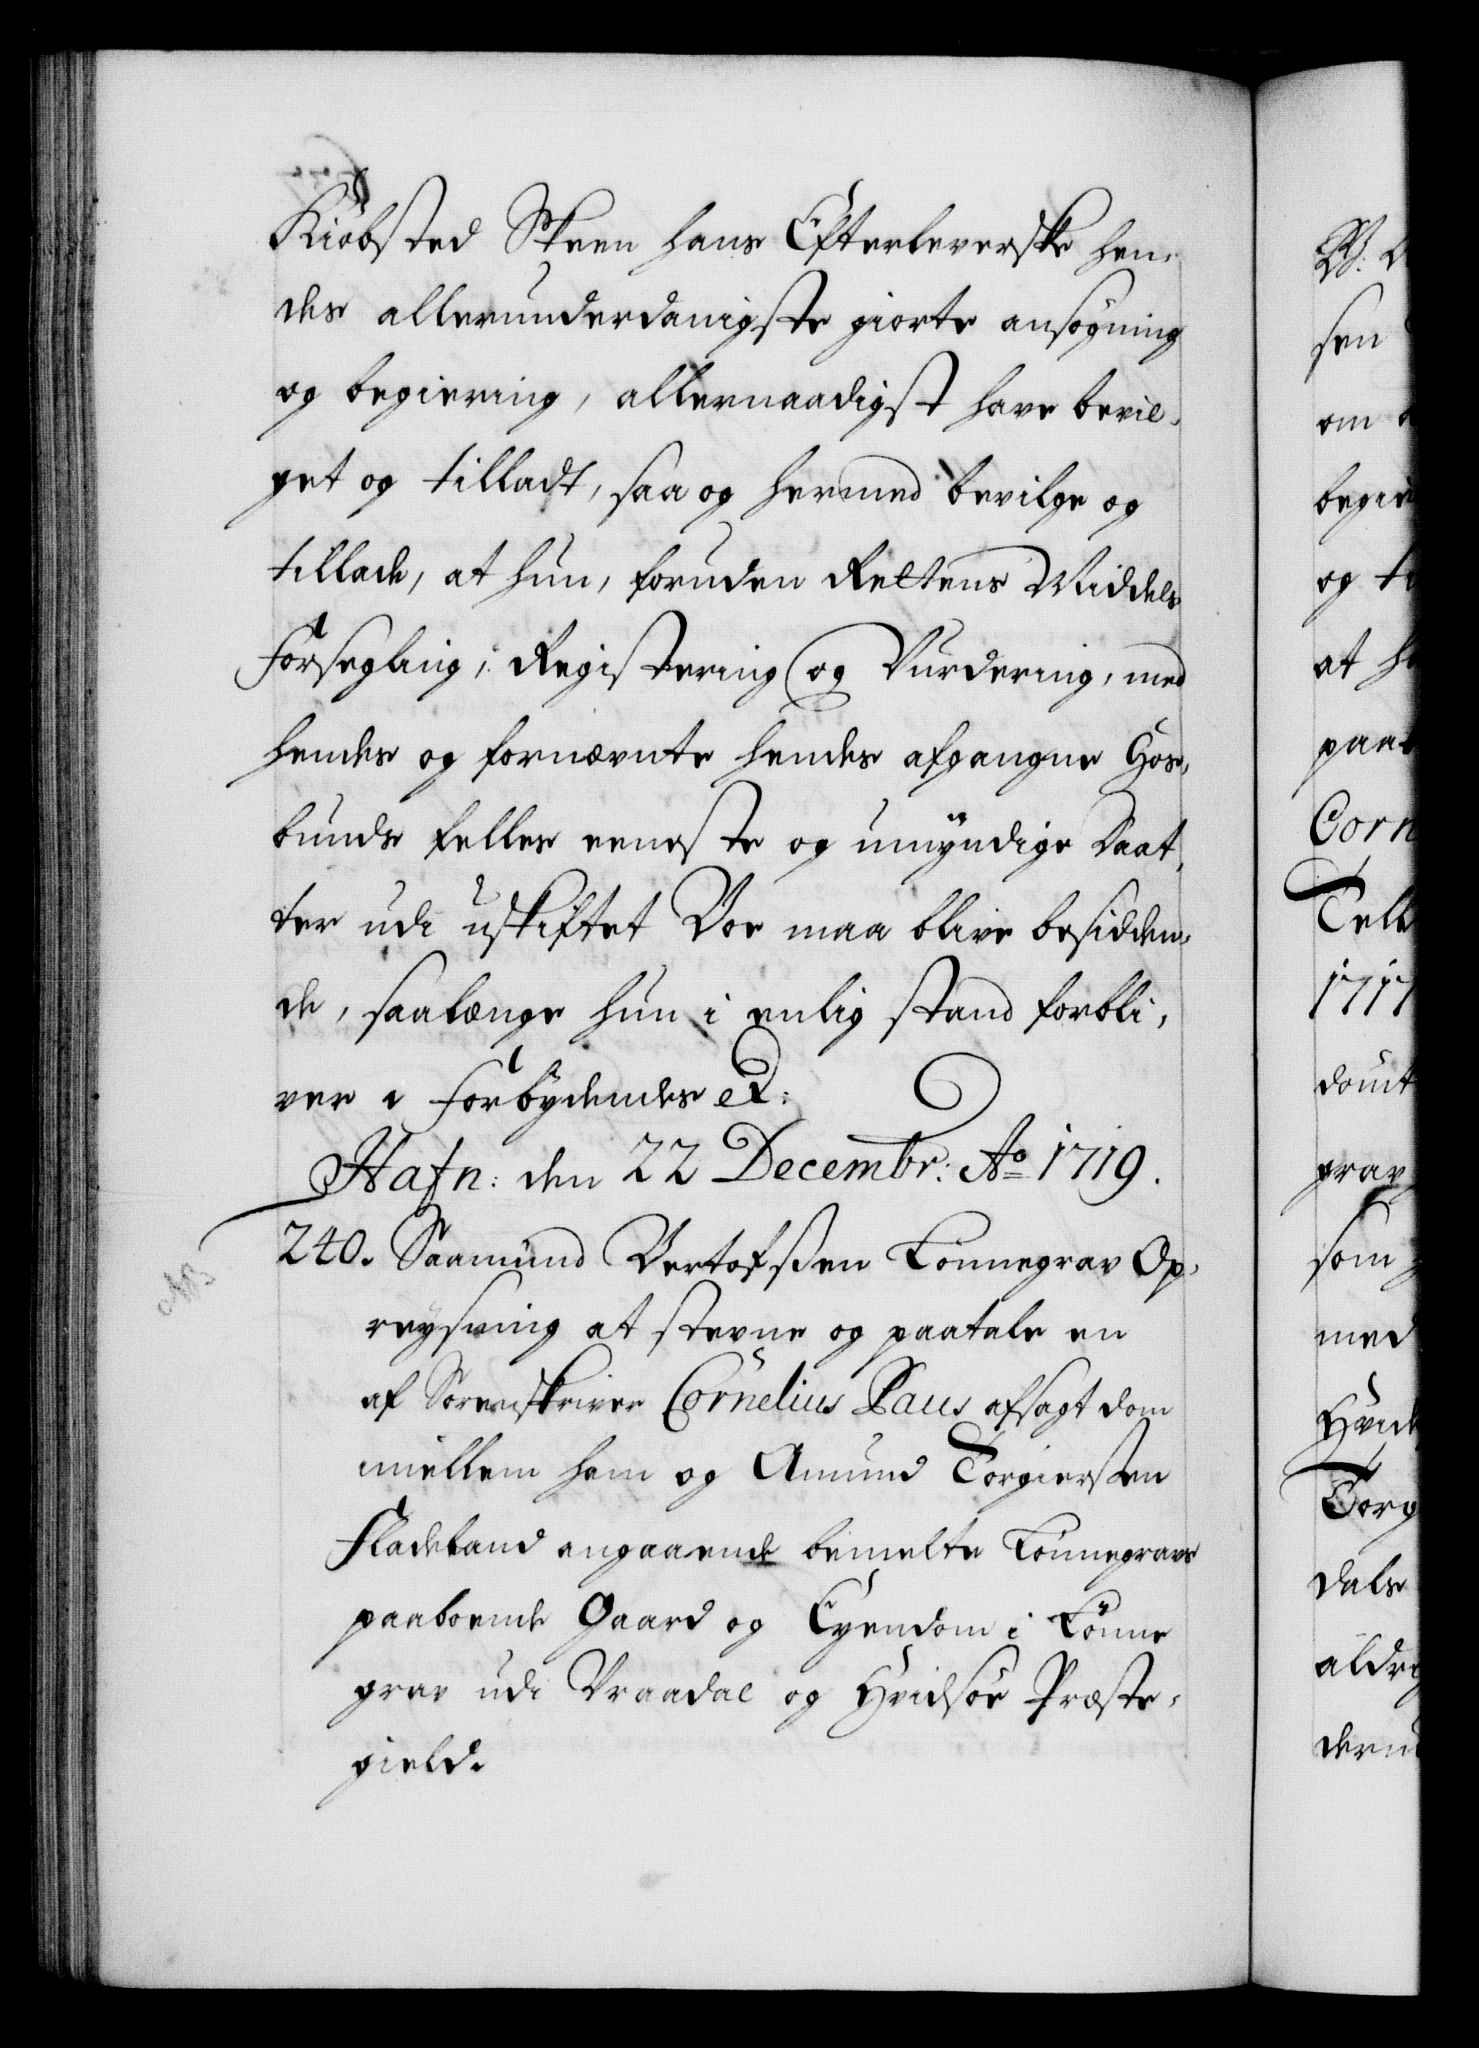 Kiöbsted Skeen hans Efterleverske hen-
des allerunderdanigste giorte ansøgning
og begiering, allernaadigst have bevil-
get og tilladt, saa og hermed bevilge og
tillade, at hun, foruden Rettens Middels
Forsegling, Registering og Vurdering, med
hendes og fornævnte hendes afgangne Hos-
bunds felles eeneste og umyndige Daat-
ter udi uskiftet Boe maa blive besidden-
de, saalænge hun i enlig stand forbli-
ver Forbydendes
Hafn: den 22 Decembr: Ao 1719.
240. Saamund Vertofssen Tönnegrav Op-
reysning at stevne og paatale en
af Sorenskriver Cornelius Paus afsagt dom
imellem ham og Amund Torgiersen
Fladeland angaaende bemelte Tönnegravs
paaboende Gaard og Eyendom i Tönne
grav udi Vraadal og Hvidsöe Præste-
gield.
W:
sen
om
begie
og
at
paat
Corn
Tell
1717
domt
grav
som
med
Hvid
Torg
dals
aldri
deru